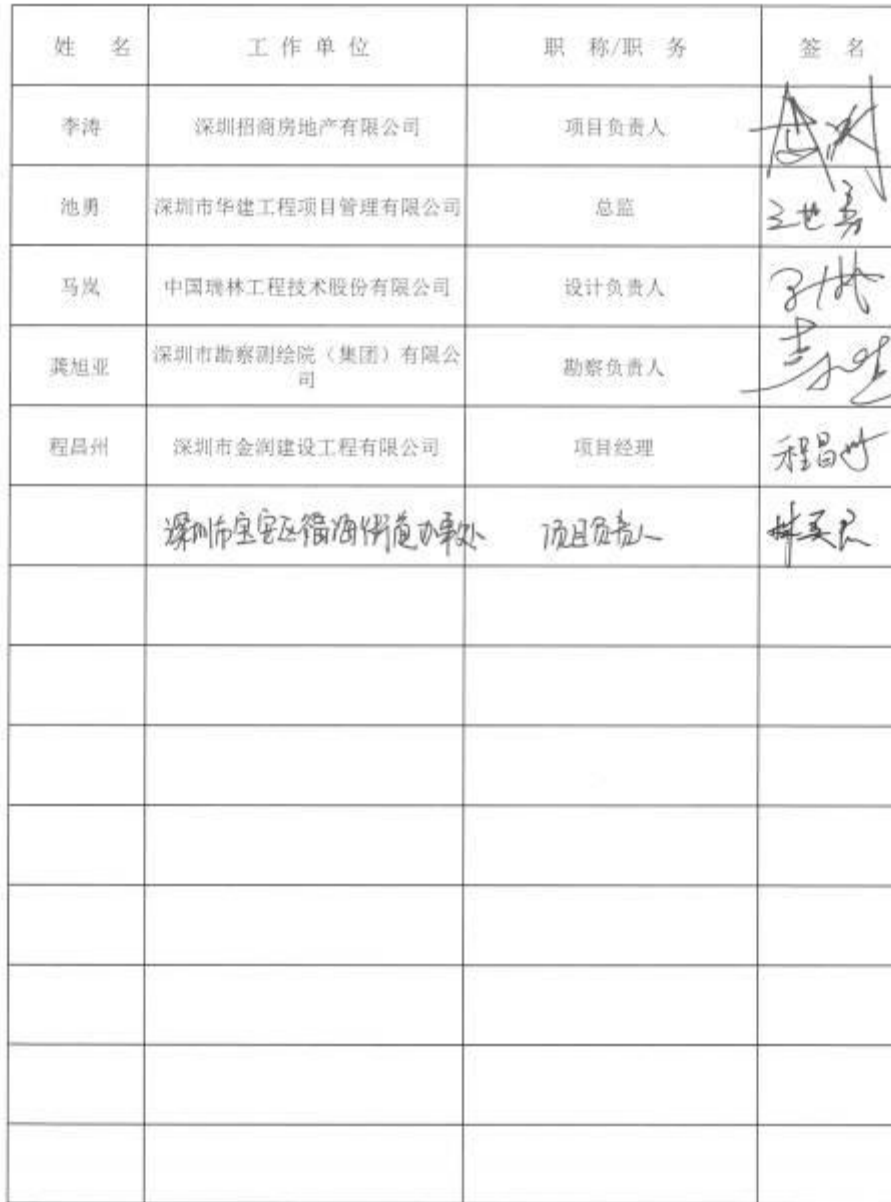 姓 名 工作单位 职 称/职 务 签 名
李涛 深圳招商房地产有限公司 项目负责人
池勇 深圳市华建工程项目管理有限公司 总监
马岚 中国瑞林工程技术股份有限公司 设计负责人
龚旭亚 深圳市勘察测绘院（集团）有限公
司 勘察负责人
程昌州 深圳市金润建设工程有限公司 项目经理 程昌州
深圳市宝安区福海街道办事处 项目负责人